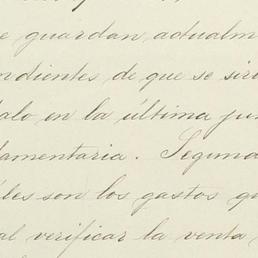 e guardan actualm
ndientes de que se sir
dalo en la última jun
damentaria. Segunda
les son los gastos qu
al verificar la venta